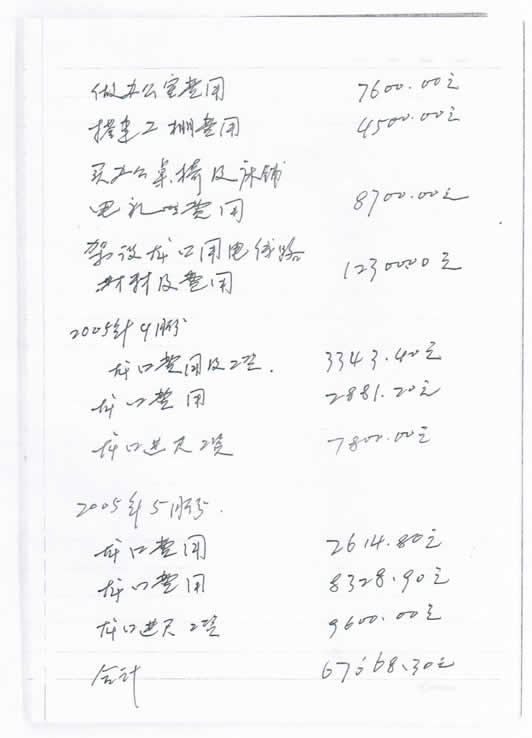 做办公室费用 7600.00元
搭建工棚费用 4500.00元
买办公桌椅及床铺
电 费用 8700.00元
架设龙口用电线路
材料及费用 12300.00元
2005年4月份
龙口费用及工资. 3343.40元
龙口费用 2881.20元
龙口进尺工资 7800.00元
2005年5月份.
龙口费用 2614.80元
龙口费用 8328.90元
龙口进尺工资 9600.00元
合计 67668.30元